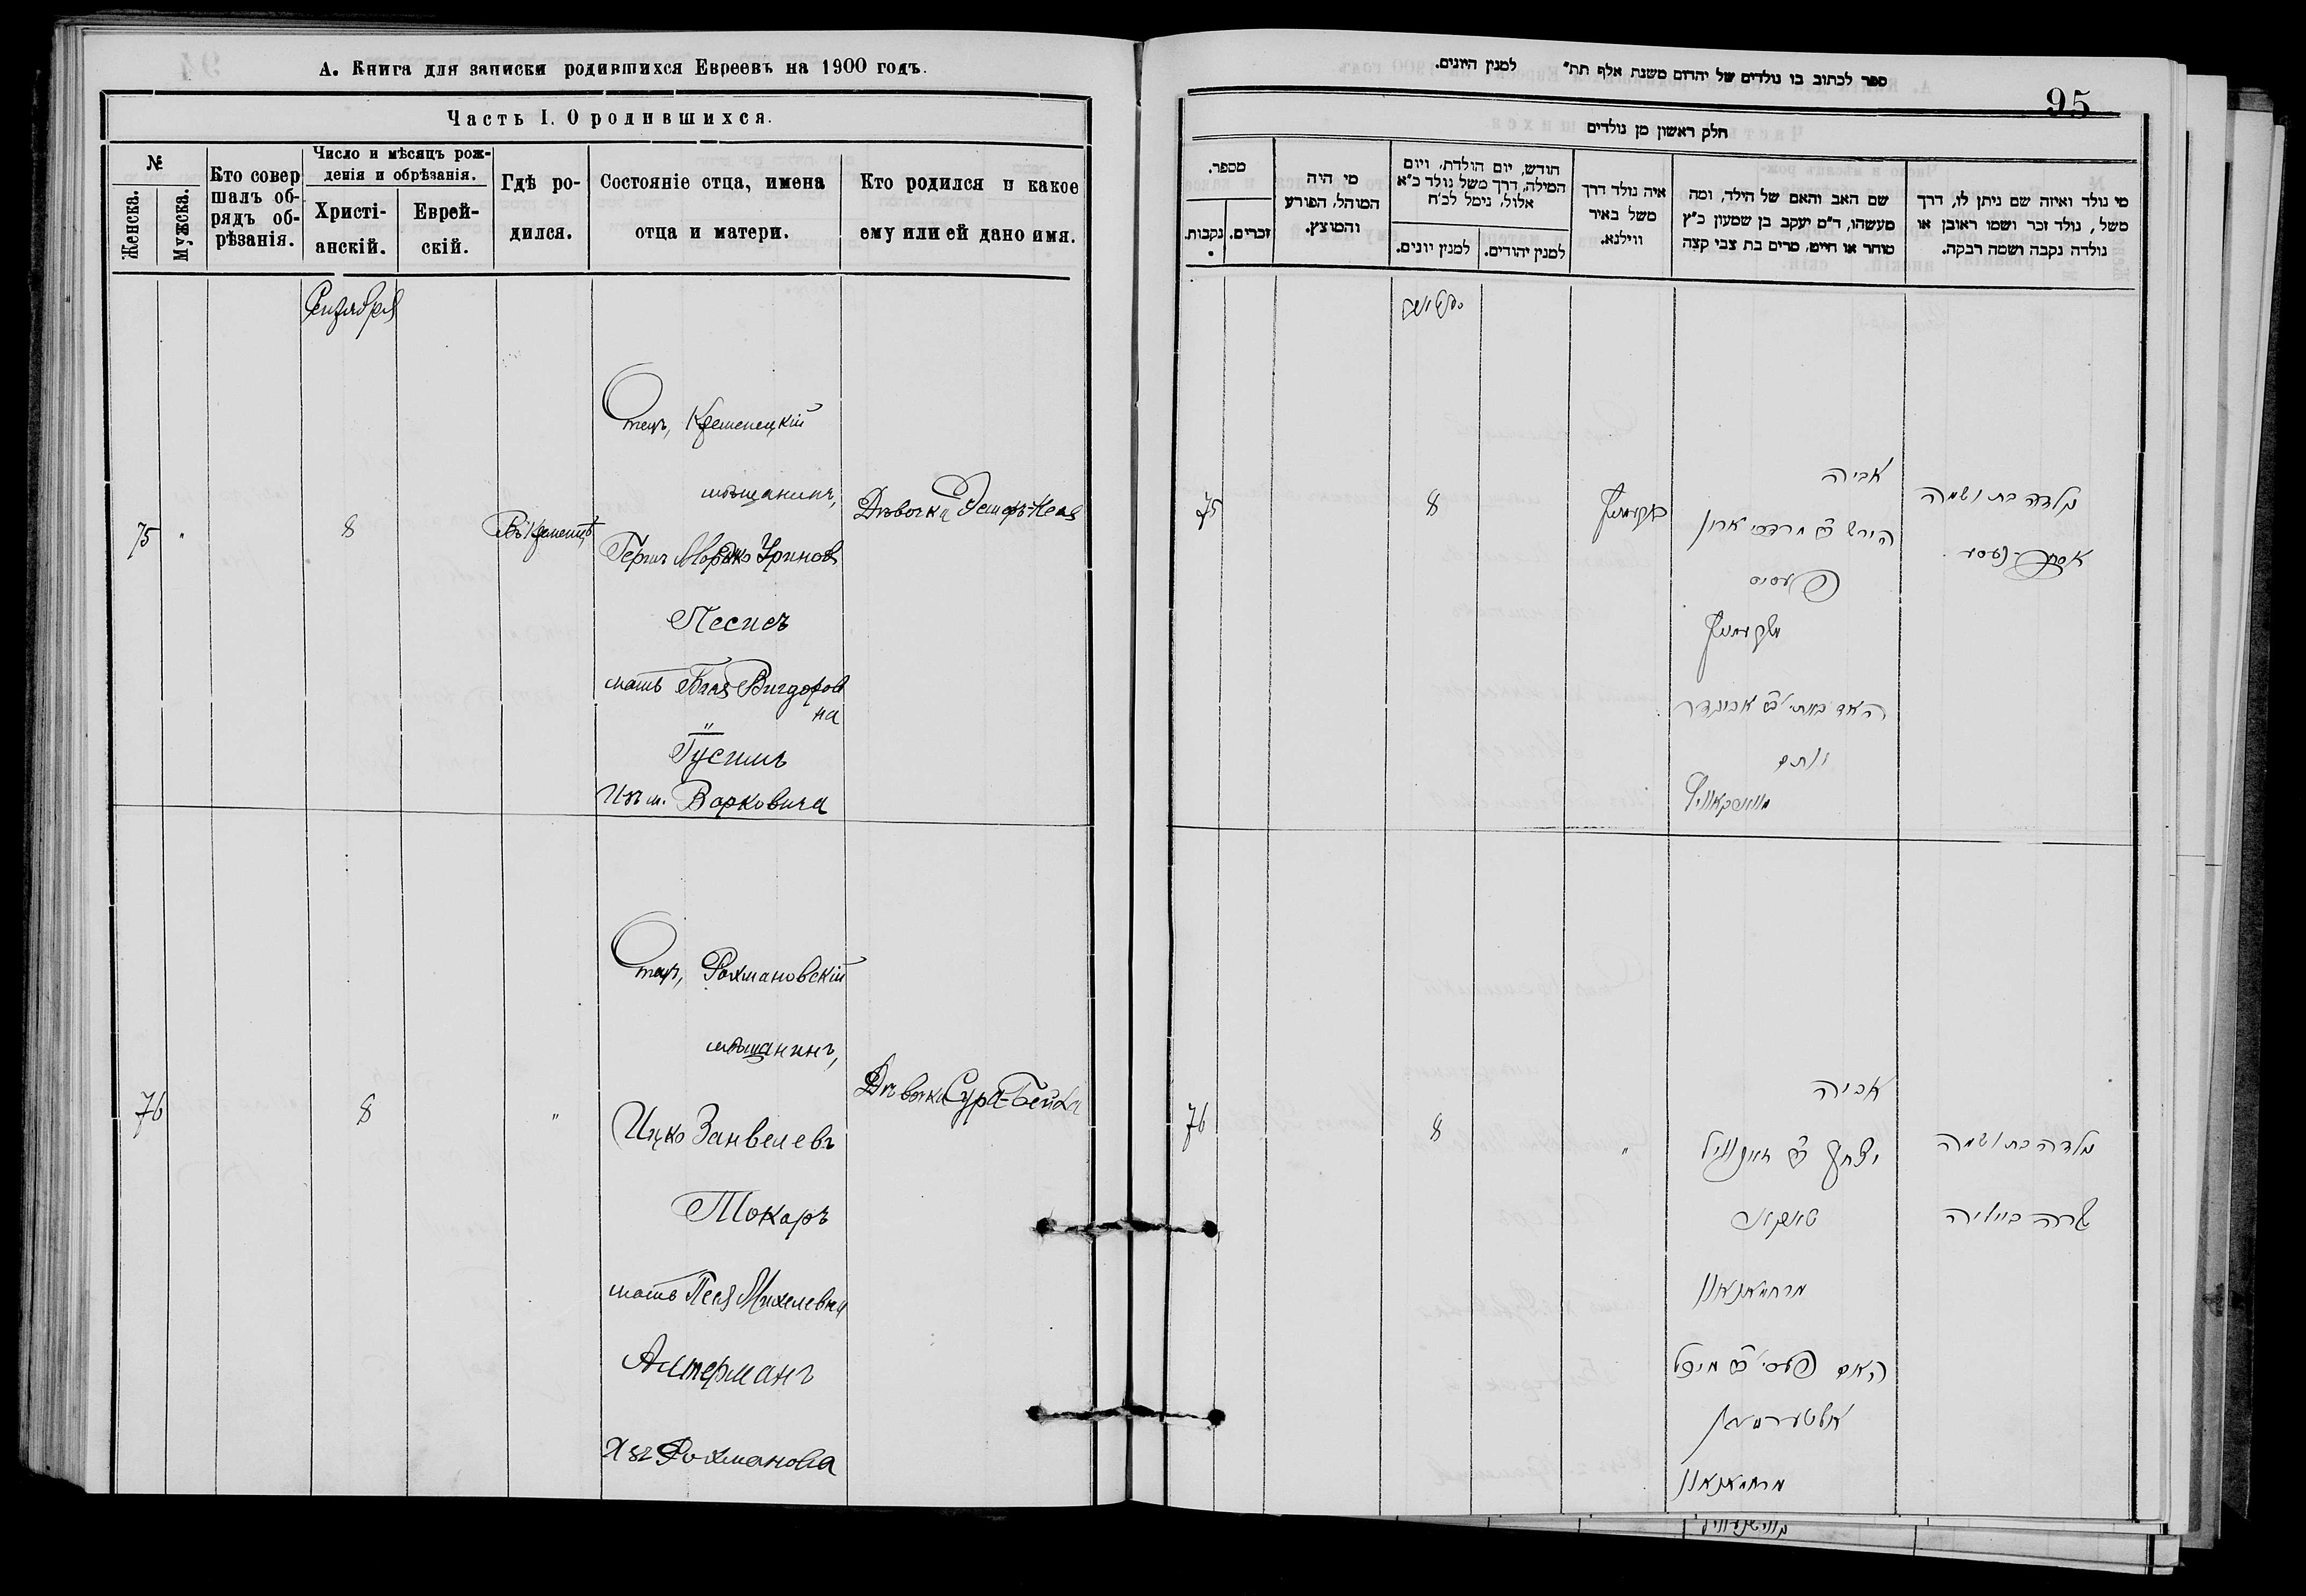 А. Книга для записки родившихся Евреевъ на 1900 годъ.
Часть I. О родившихся.
№
Женска.
Мужска.
Кто совер
шалъ об-
рядъ об-
рѣзанія.
Число и мѣсяцъ рож-
денія и обрѣзанія.
Христі-
анскій.
Еврей-
скій.
Гдѣ ро-
дился.
Состояніе отца, имена
отца и матери.
Кто родился и какое
ему или ей дано имя.
Сентября
75
"
8
Въ Кременцѣ
Отецъ, Кременецкій
мѣщанинъ,
Гершъ Мордко
Песисъ
мать Вигдоров
на
Изъ м. Варковича
Дѣвочка
76
8
"
Отецъ, Рахмановскій
мѣщанинъ,
Ицко Занвелевъ
Токаръ
мать Песя Михелевна
Алтерманъ
Рахманова
Дѣвочка Сура-Бейла
ספר לכתוב בו נולדים של יהודים משנת אלף תת" למנין היונים.
95
חלק ראשון מן נולדים
מספר.
נקבות.
זכרים.
מי היה
המוהל, הפורע
והמוצץ.
חודש, יום הולדת, ויום
המילה, דרך משל נולד כ"א
אלול, נימל לכ"ח
למנין יונים.
למנין יהודים.
איה נולד דרך
משל באיר
ווילנא.
שם האב והאם של הילד, ומה
מעשהו, ד"מ יעקב בן שמעון כ"ץ
סוחר או חייט, מרים בת צבי קצה
מי נולד ואיזה שם ניתן לו, דרך
משל, נולד זכר ושמו ראובן או
נולדה נקבה ושמה רבקה.
75
8
אביה
הירש מרדכי
פעסיס
האם
נולדה בת ושמה
76
8
"
אביה
יצחק
טאקאר
האם פעסי מיכל
אלטערמאן
נולדה בת ושמה
שרה ביילה